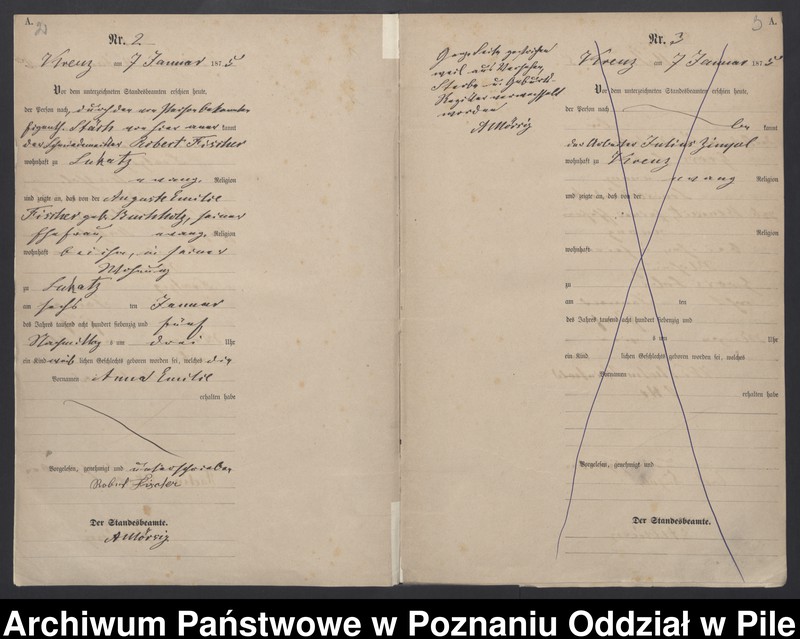 A.
Nr. 2
Kreuz am 7 Januar 1875
Vor dem unterzeichneten Standesbeamten erschien heute,
der Person nach, durch den von Person bekannten
Eigenth. Städk von hier aner kannt
der Schmiedemeister Robert Fischer
wohnhaft zu Lukatz
evang. Religion
und zeigte an, daß von der Auguste Emilie
Fischer geb. Buchholz, seiner
Ehefrau, evang. Religion
wohnhaft bei ihm, in seiner
Wohnung
zu Lukatz
am sechs ten Januar
des Jahres tausend acht hundert siebenzig und fünf
Nachmittag s um drei Uhr
ein Kind weib lichen Geschlechts geboren worden sei, welches die
Vornamen Anna Emilie
erhalten habe
Vorgelesen, genehmigt und unterschrieben
Robert Fischer
Der Standesbeamte.
AMörsig
3 A.
Nr. 3
Gegenseite gestrichen
weil aus Versehen
Sterbe u. Geburts-
Register verwechselt
worden
AMörsig
Kreuz am 7 Januar 1875
Vor dem unterzeichneten Standesbeamten erschien heute,
der Person nach
kannt
der Arbeiter Julius Zimpel
wohnhaft zu Kreuz
evang Religion
und zeigte an, daß von der
Religion
wohnhaft
zu
am ten
des Jahres tausend acht hundert siebenzig und
s um Uhr
ein Kind lichen Geschlechts geboren worden sei, welches
Vornamen
erhalten habe
Vorgelesen, genehmigt und
Der Standesbeamte.
Archiwum Państwowe w Poznaniu Oddział w Pile